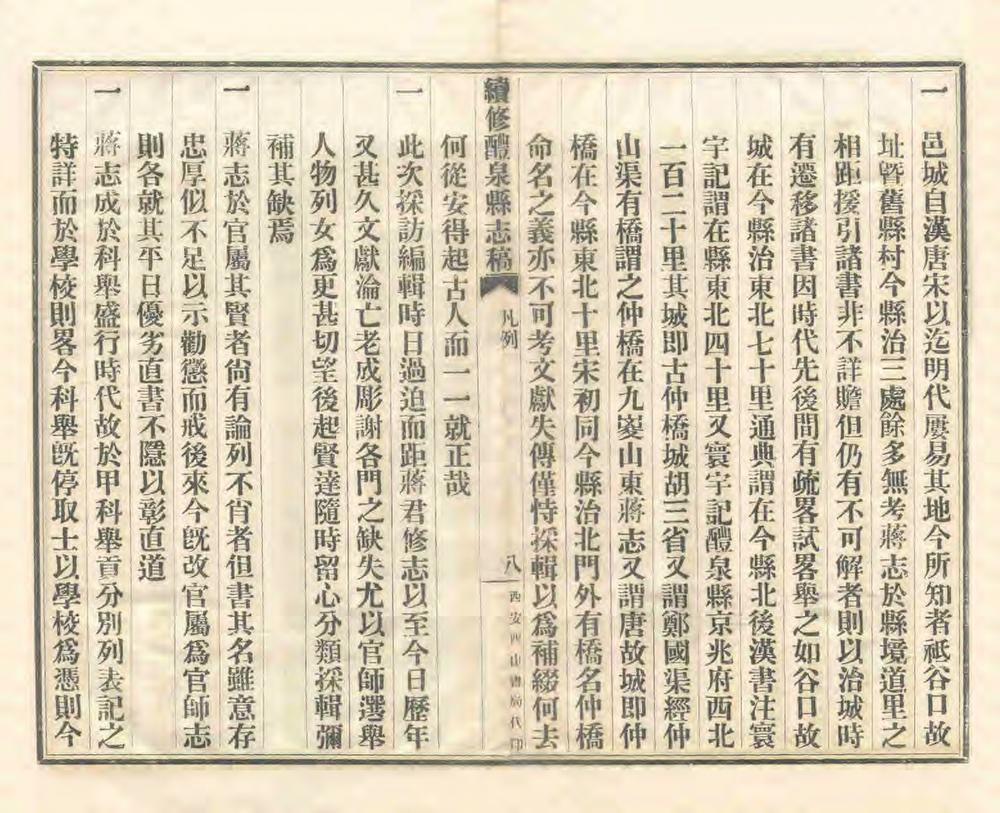 一 邑城自漢唐宋以迄明代屢易其地今所知者祇谷口故
址曁舊縣村今縣治三處餘多無考蔣志於縣境道里之
相距援引諸書非不詳贍但仍有不可解者則以治城時
有遷移諸書因時代先後間有疏畧試畧舉之如谷口故
城在今縣治東北七十里通典謂在今縣北後漢書注寰
宇記謂在縣東北四十里又寰宇記醴泉縣京兆府西北
一百二十里其城即古仲橋城胡三省又謂鄭國渠經仲
山渠有橋謂之仲橋在九嵏山東蔣志又謂唐故城即仲
橋在今縣東北十里宋初同今縣治北門外有橋名仲橋
命名之義亦不可考文獻失傳僅恃採輯以爲補綴何去
續修醴泉縣志稿 凡例 八 西安西山書局代印
何從安得起古人而一一就正哉
一 此次採訪編輯時日過迫而距蔣君修志以至今日歷年
又甚久文獻淪亡老成彫謝各門之缺失尤以官師選舉
人物列女爲更甚切望後起賢達隨時留心分類採輯彌
補其缺焉
一 蔣志於官屬其賢者尙有論列不肖者但書其名雖意存
忠厚似不足以示勸懲而戒後來今旣改官屬爲官師志
則各就其平日優劣直書不隱以彰直道
一 蔣志成於科舉盛行時代故於甲科舉貢分別列表記之
特詳而於學校則畧今科舉旣停取士以學校爲憑則今